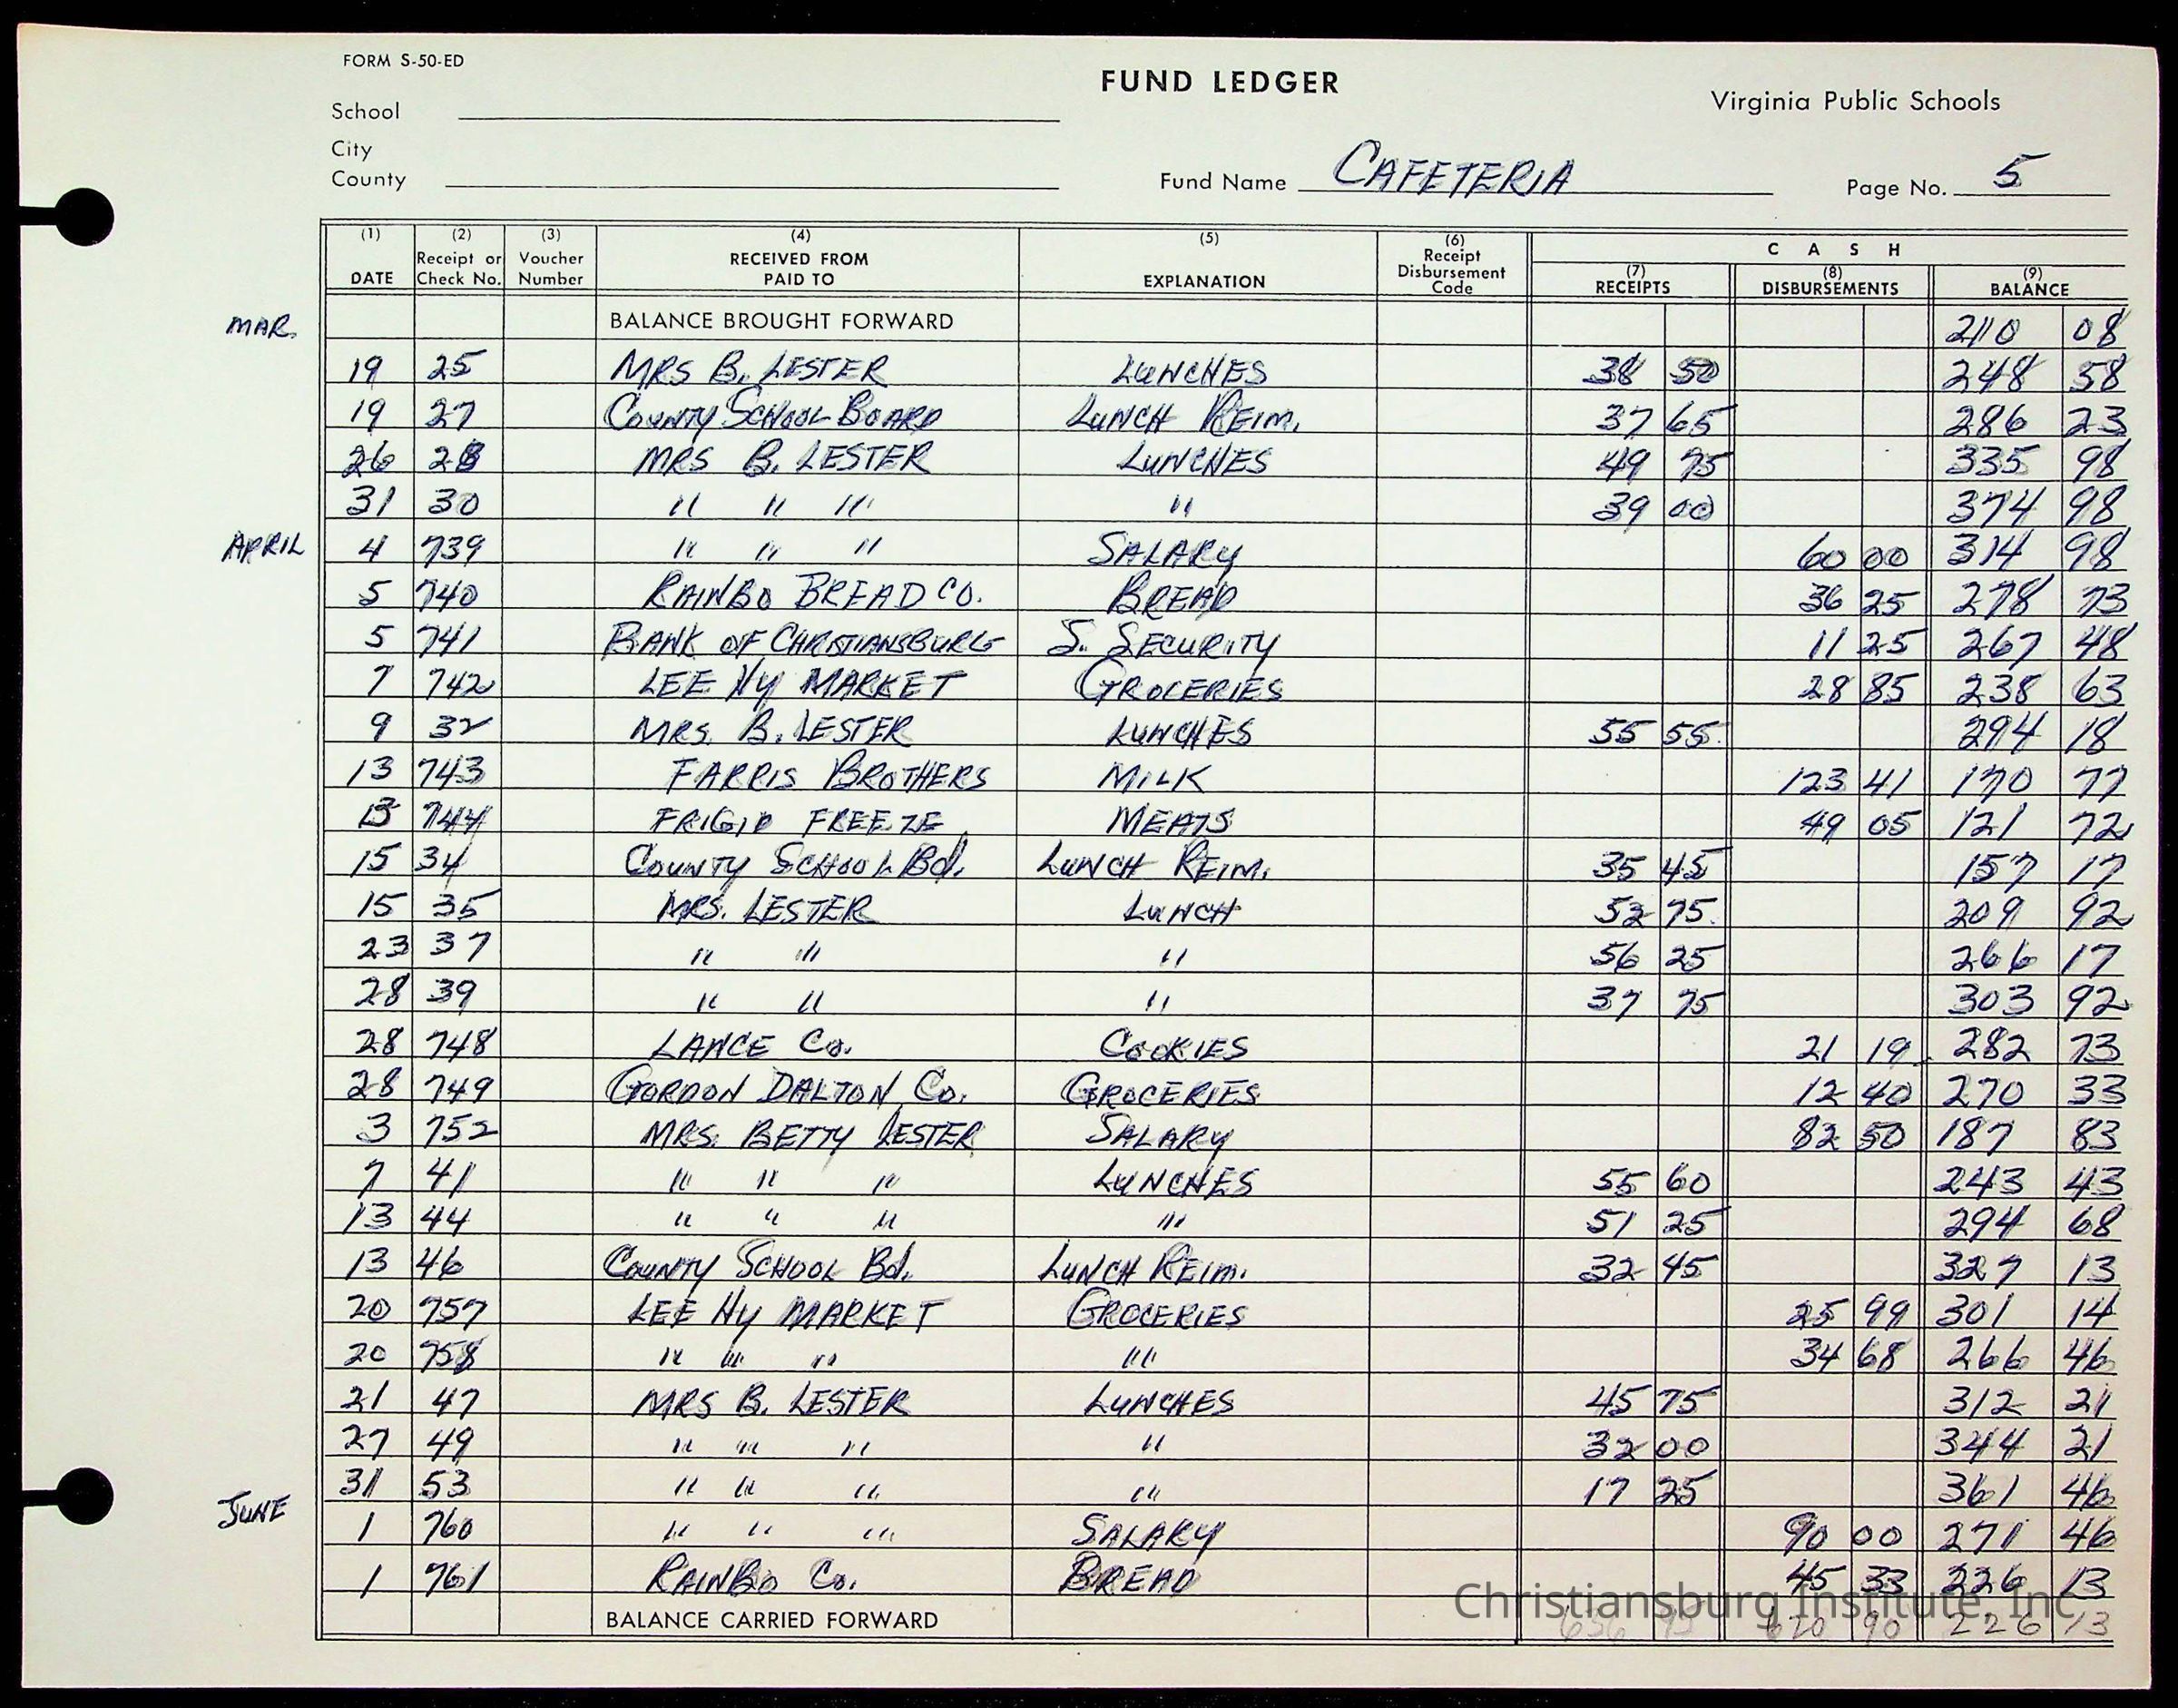 FORM S-50-ED
FUND LEDGER
Virginia Public Schools
School
City
County
Fund Name CAFETERIA
Page No. 5
(1) DATE (2) Receipt or Check No. (3) Voucher Number (4) RECEIVED FROM PAID TO (5) EXPLANATION (6) Receipt Disbursement Code CASH (7) RECEIPTS (8) DISBURSEMENTS (9) BALANCE
MAR. BALANCE BROUGHT FORWARD 210 08
19 25 MRS B. LESTER LUNCHES 38 50 248 58
19 27 COUNTY SCHOOL BOARD LUNCH REIM. 37 65 286 23
26 28 MRS B. LESTER LUNCHES 49 75 335 98
31 30 " " " " 39 00 374 98
APRIL 4 739 " " " SALARY 60 00 314 98
5 740 RAINBO BREAD CO. BREAD 36 25 278 73
5 741 BANK OF CHRISTIANSBURG S. SECURITY 11 25 267 48
7 742 LEE HY MARKET GROCERIES 28 85 238 63
9 32 MRS. B. LESTER LUNCHES 55 55 294 18
13 743 FARRIS BROTHERS MILK 123 41 170 77
13 744 FRIGID FREEZE MEATS 49 05 121 72
15 34 COUNTY SCHOOL Bd. LUNCH REIM. 35 45 157 17
15 35 MRS. LESTER LUNCH 52 75 209 92
23 37 " " " 56 25 266 17
28 39 " " " 37 75 303 92
28 748 LANCE Co. COOKIES 21 19 282 73
28 749 GORDON DALTON Co. GROCERIES 12 40 270 33
3 752 MRS. BETTY LESTER SALARY 82 50 187 83
7 41 " " " LUNCHES 55 60 243 43
13 44 " " " " 51 25 294 68
13 46 COUNTY SCHOOL Bd. LUNCH REIM. 32 45 327 13
20 757 LEE HY MARKET GROCERIES 25 99 301 14
20 758 " " " " 34 68 266 46
21 47 MRS B. LESTER LUNCHES 45 75 312 21
27 49 " " " " 32 00 344 21
31 53 " " " " 17 25 361 46
JUNE 1 760 " " " SALARY 90 00 271 46
1 761 RAINBO Co. BREAD 45 33 226 13
BALANCE CARRIED FORWARD 636 95 620 90 226 13
Christiansburg Institute, Inc